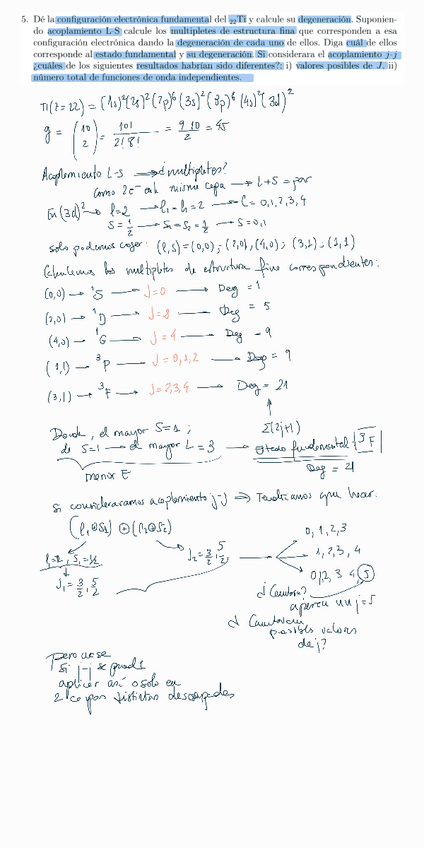 5. Dé la configuración electrónica fundamental del ₂₂Ti y calcule su degeneración. Suponien-
do acoplamiento L-S calcule los multipletes de estructura fina que corresponden a esa
configuración electrónica dando la degeneración de cada uno de ellos. Diga cuál de ellos
corresponde al estado fundamental y su degeneración. Si considera el acoplamiento j-j
¿cuáles de los siguientes resultados habrían sido diferentes?: i) valores posibles de J, ii)
número total de funciones de onda independientes.
Ti(Z=22) = (1s)²(2s)²(2p)⁶(3s)²(3p)⁶(4s)²(3d)²
g = (10 2) = 10! / 2! 8! = 9 10 / 2 = 45
Acoplamiento L-S → ¿multipletes?
como 2e⁻ en la misma capa → L+S = par
En (3d)² → l=2 → l₁=l₂=2 → L=0,1,2,3,4
S=1/2 → S₁=S₂=1/2 → S=0,1
solo podemos coger: (l,s)=(0,0); (2,0), (4,0); (3,1); (1,1)
Calculemos los multipletes de estructura fina correspondientes:
(0,0) → ¹S → J=0 → Deg = 1
(2,0) → ¹D → J=2 → Deg = 5
(4,0) → ¹G → J=4 → Deg = 9
(1,1) → ³P → J=0,1,2 → Deg = 9
(3,1) → ³F → J=2,3,4 → Deg = 21
Σ(2j+1)
Donde, el mayor S=1;
de S=1 → el mayor L=3 → Estado fundamental ³F
menor E
Deg = 21
Si consideraramos acoplamiento j-j ⇒ Tendríamos que hacer.
(l₁⊗S₁) ⊕ (l₂⊗S₂)
l=2, S₁=1/2
J₁=3/2, 5/2
J₂=3/2, 5/2
0, 1, 2, 3
1, 2, 3, 4
0,1,2, 3 4, 5
¿Cambiaría?
aparece un j=5
¿Cambiarían
posibles valores
de j?
Pero no se
si j-j se puede
aplicar así o solo en
2 capas distintas desocupadas